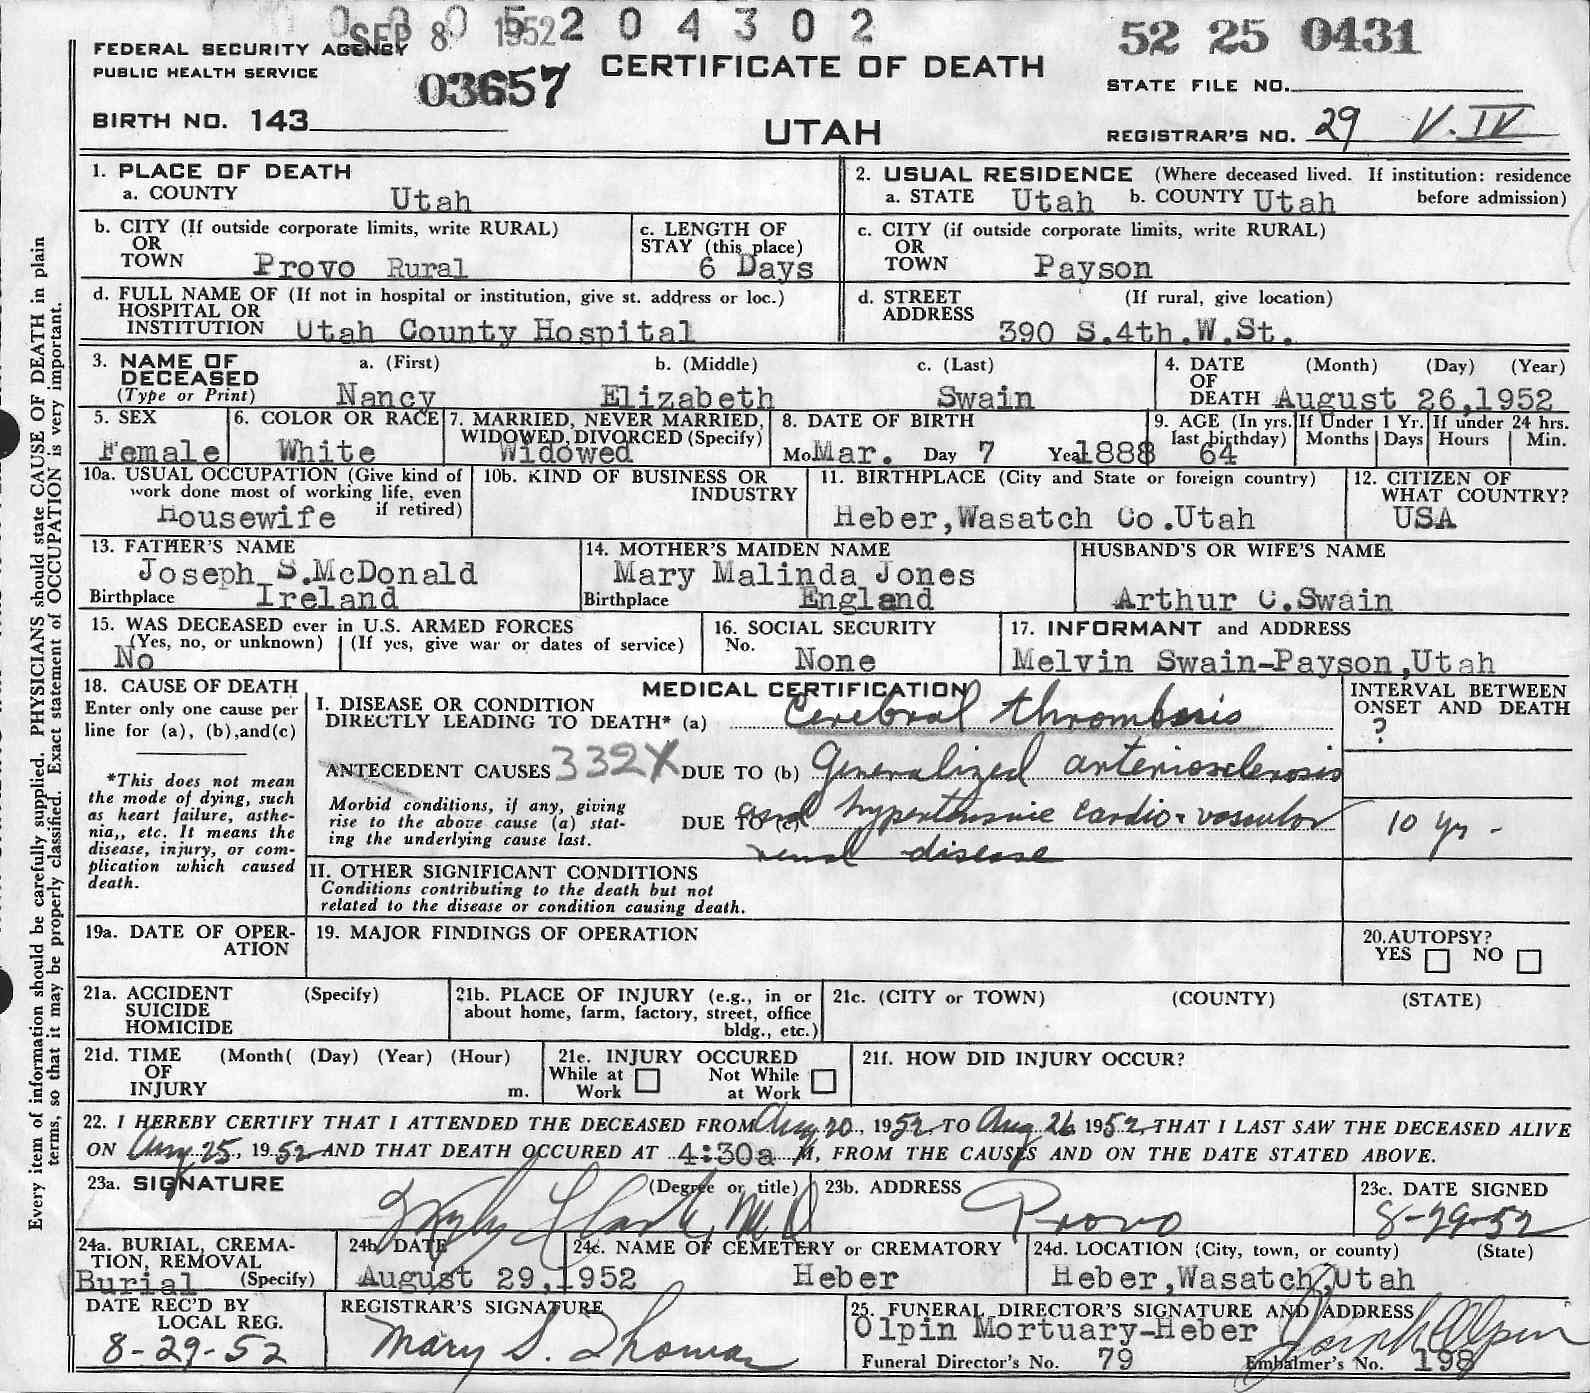 SEP 8 1952 2 0 4 3 0 2
52 25 0431
FEDERAL SECURITY AGENCY
PUBLIC HEALTH SERVICE
03657
CERTIFICATE OF DEATH
STATE FILE NO.
BIRTH NO. 143
UTAH
REGISTRAR'S NO. 29 V. IV
Every item of information should be carefully supplied. PHYSICIANS should state CAUSE OF DEATH in plain
terms, so that it may be properly classified. Exact statement of OCCUPATION is very important.
1. PLACE OF DEATH
a. COUNTY Utah
2. USUAL RESIDENCE (Where deceased lived. If institution: residence
a. STATE Utah b. COUNTY Utah before admission)
b. CITY (If outside corporate limits, write RURAL)
OR
TOWN Provo Rural
c. LENGTH OF
STAY (this place)
6 Days
c. CITY (if outside corporate limits, write RURAL)
OR
TOWN Payson
d. FULL NAME OF (If not in hospital or institution, give st. address or loc.)
HOSPITAL OR
INSTITUTION Utah County Hospital
d. STREET (If rural, give location)
ADDRESS
390 S.4th.W.St.
3. NAME OF
DECEASED
(Type or Print)
a. (First) b. (Middle) c. (Last)
Nancy Elizabeth Swain
4. DATE (Month) (Day) (Year)
OF
DEATH August 26,1952
5. SEX
Female
6. COLOR OR RACE
White
7. MARRIED, NEVER MARRIED,
WIDOWED, DIVORCED (Specify)
Widowed
8. DATE OF BIRTH
Mo Mar. Day 7 Year 1888
9. AGE (In yrs.
last birthday)
64
If Under 1 Yr.
Months Days
If under 24 hrs.
Hours Min.
10a. USUAL OCCUPATION (Give kind of
work done most of working life, even
if retired)
Housewife
10b. KIND OF BUSINESS OR
INDUSTRY
11. BIRTHPLACE (City and State or foreign country)
Heber,Wasatch Co.Utah
12. CITIZEN OF
WHAT COUNTRY?
USA
13. FATHER'S NAME
Joseph S.McDonald
Birthplace Ireland
14. MOTHER'S MAIDEN NAME
Mary Malinda Jones
Birthplace England
HUSBAND'S OR WIFE'S NAME
Arthur C.Swain
15. WAS DECEASED ever in U.S. ARMED FORCES
(Yes, no, or unknown) (If yes, give war or dates of service)
No
16. SOCIAL SECURITY
No.
None
17. INFORMANT and ADDRESS
Melvin Swain-Payson,Utah
18. CAUSE OF DEATH
Enter only one cause per
line for (a), (b),and(c)
*This does not mean
the mode of dying, such
as heart failure, asthe-
nia,, etc. It means the
disease, injury, or com-
plication which caused
death.
MEDICAL CERTIFICATION
I. DISEASE OR CONDITION
DIRECTLY LEADING TO DEATH* (a) Cerebral thrombosis
ANTECEDENT CAUSES 332X DUE TO (b) Generalized arteriosclerosis
Morbid conditions, if any, giving
rise to the above cause (a) stat-
ing the underlying cause last.
DUE TO (c) and hypertensive cardio-vascular
renal disease
II. OTHER SIGNIFICANT CONDITIONS
Conditions contributing to the death but not
related to the disease or condition causing death.
INTERVAL BETWEEN
ONSET AND DEATH
?
10 yr -
19a. DATE OF OPER-
ATION
19. MAJOR FINDINGS OF OPERATION
20.AUTOPSY?
YES NO
21a. ACCIDENT (Specify)
SUICIDE
HOMICIDE
21b. PLACE OF INJURY (e.g., in or
about home, farm, factory, street, office
bldg., etc.)
21c. (CITY or TOWN) (COUNTY) (STATE)
21d. TIME (Month( (Day) (Year) (Hour)
OF
INJURY m.
21e. INJURY OCCURED
While at Not While
Work at Work
21f. HOW DID INJURY OCCUR?
22. I HEREBY CERTIFY THAT I ATTENDED THE DECEASED FROM Aug 20, 1952 TO Aug 26 1952, THAT I LAST SAW THE DECEASED ALIVE
ON Aug 25, 1952 AND THAT DEATH OCCURED AT 4:30a M, FROM THE CAUSES AND ON THE DATE STATED ABOVE.
23a. SIGNATURE (Degree or title)
Clark, M D
23b. ADDRESS
Provo
23c. DATE SIGNED
8-29-52
24a. BURIAL, CREMA-
TION, REMOVAL
Burial (Specify)
24b. DATE
August 29,1952
24c. NAME OF CEMETERY or CREMATORY
Heber
24d. LOCATION (City, town, or county) (State)
Heber,Wasatch,Utah
DATE REC'D BY
LOCAL REG.
8-29-52
REGISTRAR'S SIGNATURE
Mary S. Thomas
25. FUNERAL DIRECTOR'S SIGNATURE AND ADDRESS
Olpin Mortuary-Heber Olpin
Funeral Director's No. 79 Embalmer's No. 198